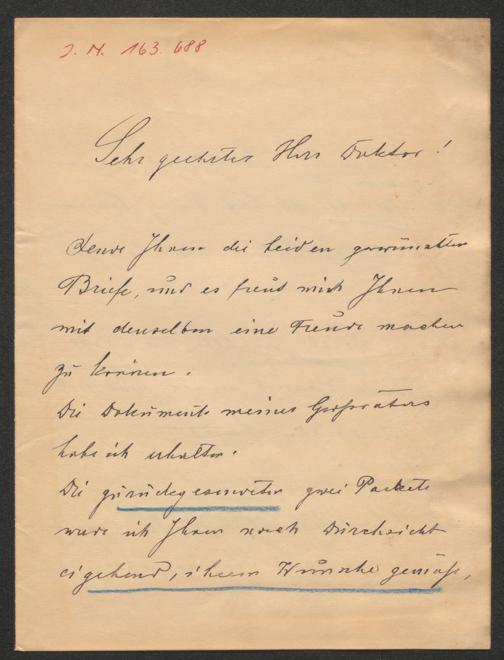 J. N. 163.688
Sehr geehrter Herr Doktor!
Sende Ihnen die beiden gewünschten
Briefe, und es freut mich Ihnen
mit denselben eine Freude machen
zu können.
Die Dokumente meines Großvaters
habe ich erhalten.
Die zwei Packete
werde ich Ihnen nach Durchsicht
ihrem Wunsche gemäß,